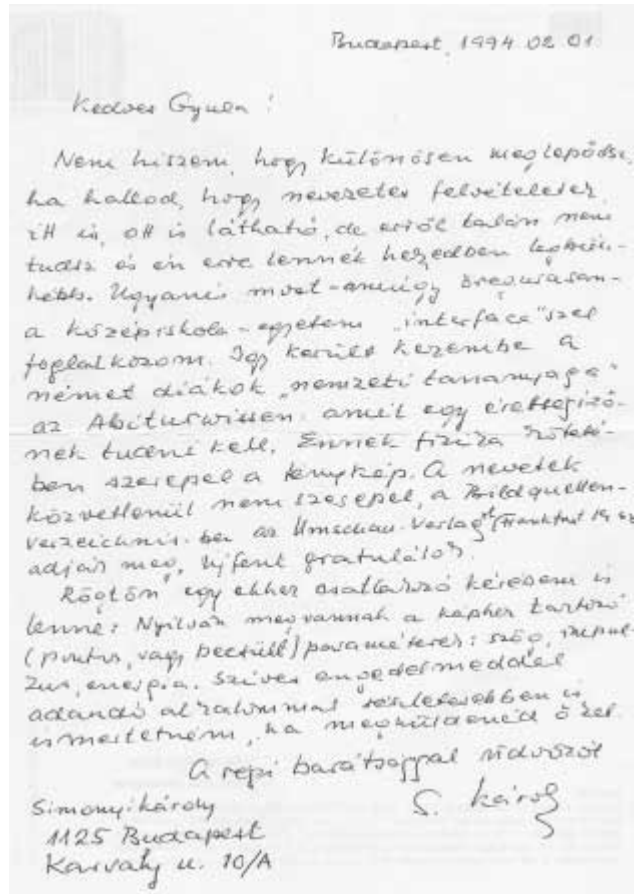 Budapest, 1994 02 01.
Kedves Gyula!
Nem hiszem, hogy különösen meglepődsz,
ha hallod, hogy nevezetes felvételetek
itt is, ott is látható, de erről talán nem
tudsz és én erre lennék
Ugyanis most - amúgy öregurasan -
a középiskola - egyetem "interface"-szel
foglalkozom. Így került kezembe a
német diákok "nemzeti tananyaga"
az Abiturwissen, amit egy érettségiző-
nek tudni kell. Ennek fizika köteté-
ben szerepel a fénykép. A nevetek
közvetlenül nem szerepel, a Bildquellen-
verzeichnis-ben az Umschau-Verlag (Frankfurt
adják meg, újfent gratulálok.
Rögtön egy ehhez csatlakozó kérésem is
lenne: Nyilván megvannak a képhez tartozó
(pontos, vagy becsült) paraméterek: szög, impul-
zus, energia. Szíves engedelmeddel
adandó alkalommal részletesebben is
ismertetném, ha megküldenéd őket.
A régi barátsággal üdvözöl
S. Károly
Simonyi Károly
1125 Budapest
Karvaly u. 10/A